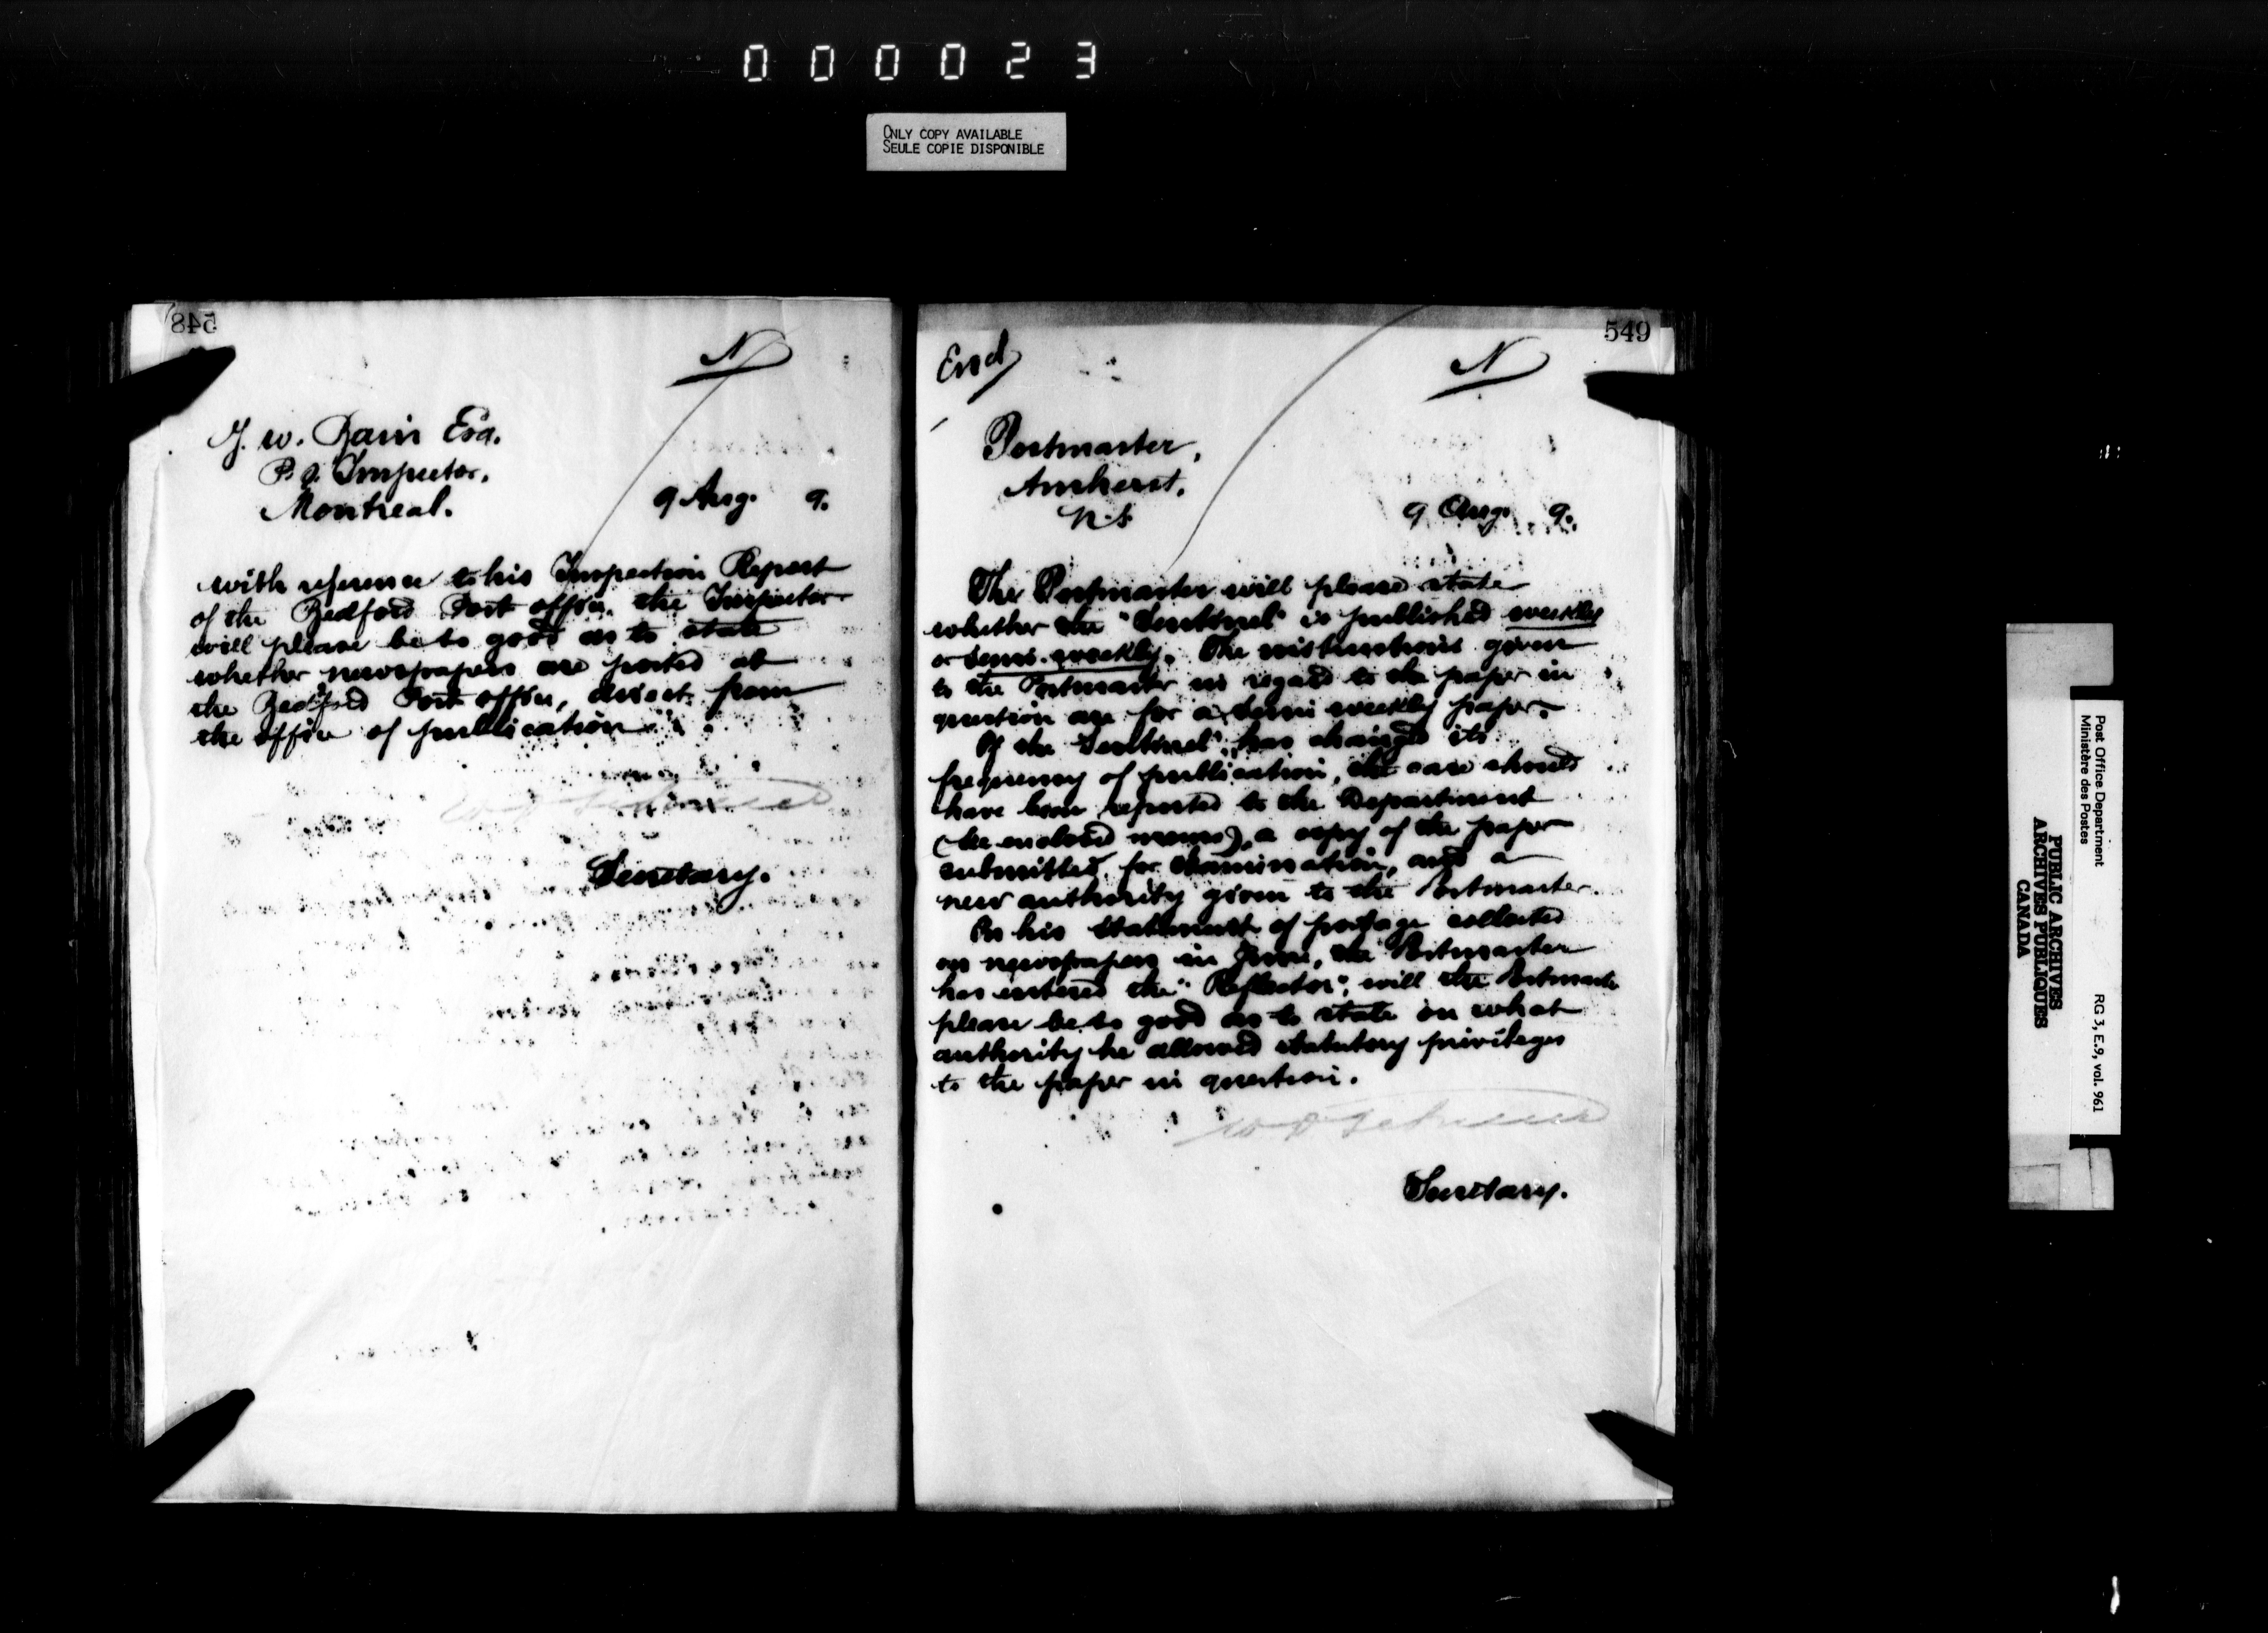 000023
ONLY COPY AVAILABLE
SEULE COPIE DISPONIBLE
548
N
J. W. Bain Esq.
P.O. Inspector,
Montreal.
9 Aug. 9.
With reference to his Inspection Report
of the Bedford Post office, the Inspector
will please be so good as to state
whether newspapers are posted at
the Bedford Post office, direct from
the office of publication
Secretary.
549
Encl
N
Postmaster,
Amherst,
N.S.
9 Aug. 9.
The Postmaster will please state
whether the "Sentinel" is published weekly
or semi-weekly. The instructions given
to the Postmaster in regard to the paper in
question are for a semi weekly paper.
If the "Sentinel" has changed its
frequency of publication, the case should
have been reported to the Department
(see enclosed memo), a copy of the paper
submitted for examination, and a
new authority given to the Postmaster.
In his statement of postage collected
on newspapers in June, the Postmaster
has entered the "Reflector"; will the Postmaster
please be so good as to state on what
authority he allowed statutory privileges
to the paper in question.
Secretary.
Post Office Department
Ministère des Postes
RG 3, E.9, vol. 961
PUBLIC ARCHIVES
ARCHIVES PUBLIQUES
CANADA